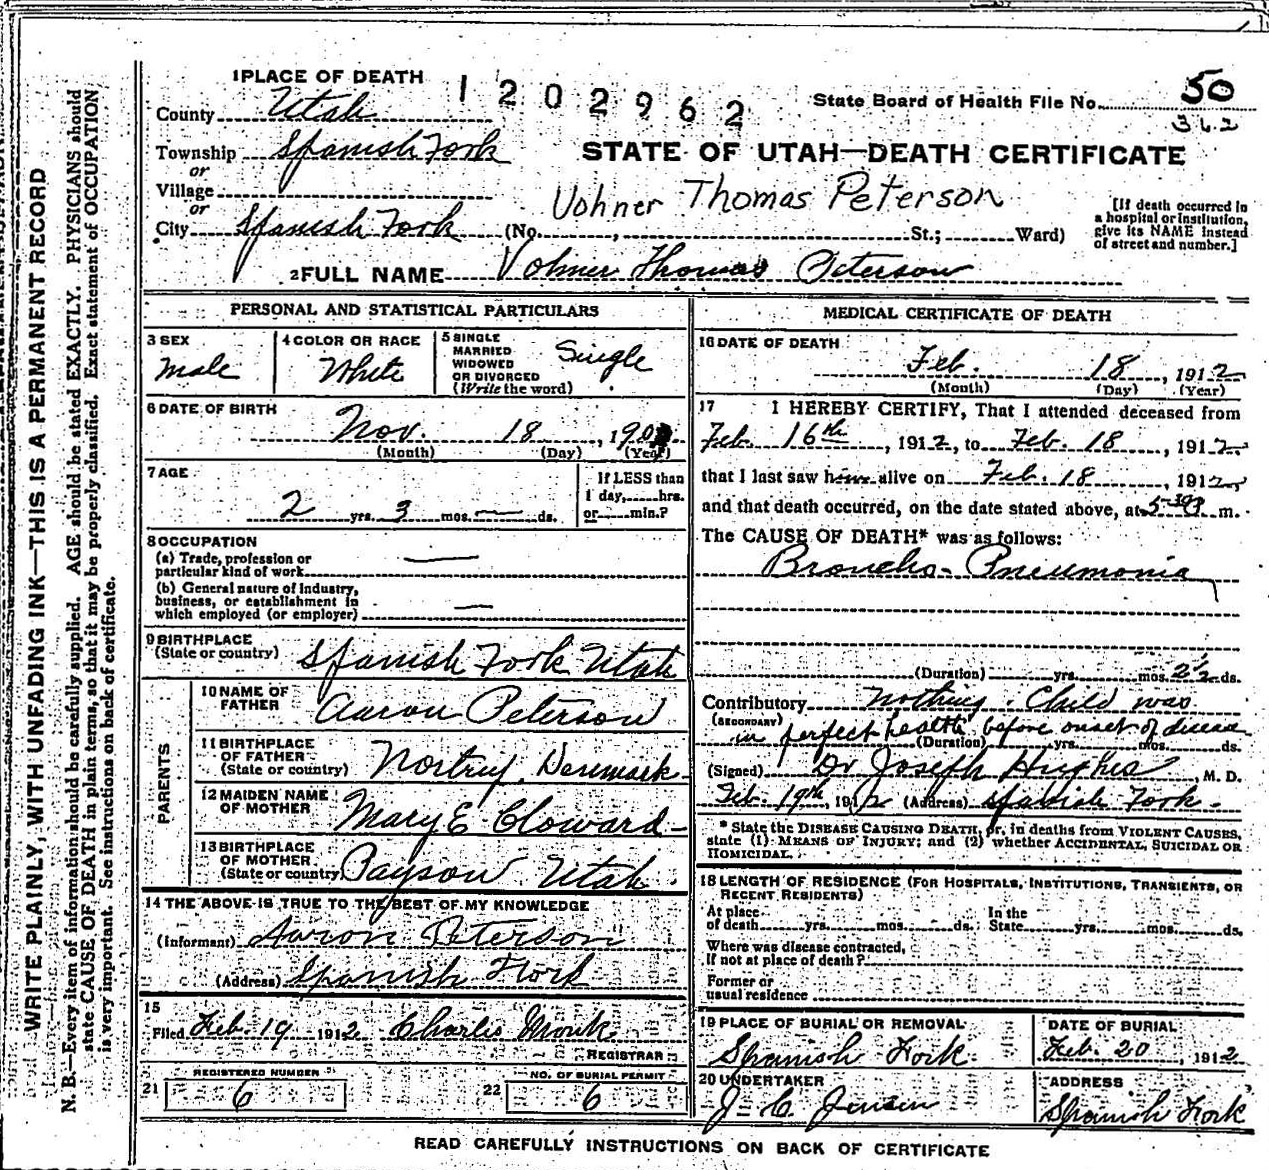 1 PLACE OF DEATH
1202962
State Board of Health File No. 50
362
County Utah
Township Spanish Fork
or
Village
or
City Spanish Fork
STATE OF UTAH—DEATH CERTIFICATE
Vohner Thomas Peterson
(No. , St.; Ward)
[If death occurred in
a hospital or institution,
give its NAME instead
of street and number.]
2 FULL NAME Volmer Thomas Peterson
PERSONAL AND STATISTICAL PARTICULARS
3 SEX
Male
4 COLOR OR RACE
White
5 SINGLE
MARRIED
WIDOWED
OR DIVORCED
(Write the word)
Single
6 DATE OF BIRTH
Nov. 18, 190
(Month) (Day) (Year)
7 AGE
2 yrs. 3 mos. — ds.
If LESS than
1 day, hrs.
or min.?
8 OCCUPATION
(a) Trade, profession or
particular kind of work —
(b) General nature of industry,
business, or establishment in
which employed (or employer) —
9 BIRTHPLACE
(State or country) Spanish Fork Utah
PARENTS
10 NAME OF
FATHER Aaron Peterson
11 BIRTHPLACE
OF FATHER
(State or country) Denmark
12 MAIDEN NAME
OF MOTHER Mary E Cloward
13 BIRTHPLACE
OF MOTHER
(State or country) Payson Utah
14 THE ABOVE IS TRUE TO THE BEST OF MY KNOWLEDGE
(Informant) Aaron Peterson
(Address) Spanish Fork
15
Filed Feb. 19 1912 Charles Monk
REGISTRAR
21 REGISTERED NUMBER
6
22 NO. OF BURIAL PERMIT
6
MEDICAL CERTIFICATE OF DEATH
16 DATE OF DEATH
Feb. 18, 1912
(Month) (Day) (Year)
17 I HEREBY CERTIFY, That I attended deceased from
Feb. 16th, 1912, to Feb. 18, 1912,
that I last saw him alive on Feb. 18, 1912,
and that death occurred, on the date stated above, at 5-30 P m.
The CAUSE OF DEATH* was as follows:
Broncho-Pneumonia
(Duration) yrs. mos. 2½ ds.
Contributory Nothing. Child was
(SECONDARY) in perfect health before onset of disease
(Duration) yrs. mos. ds.
(Signed) Dr Joseph Hughes, M. D.
Feb. 19th, 1912 (Address) Spanish Fork.
* State the DISEASE CAUSING DEATH, or, in deaths from VIOLENT CAUSES,
state (1) MEANS OF INJURY; and (2) whether ACCIDENTAL, SUICIDAL OR
HOMICIDAL.
18 LENGTH OF RESIDENCE (FOR HOSPITALS, INSTITUTIONS, TRANSIENTS, OR
RECENT RESIDENTS)
At place
of death yrs. mos. ds.
In the
State yrs. mos. ds.
Where was disease contracted,
If not at place of death?
Former or
usual residence
19 PLACE OF BURIAL OR REMOVAL
Spanish Fork.
DATE OF BURIAL
Feb. 20, 1912
20 UNDERTAKER
J C Jensen
ADDRESS
Spanish Fork
READ CAREFULLY INSTRUCTIONS ON BACK OF CERTIFICATE
WRITE PLAINLY, WITH UNFADING INK—THIS IS A PERMANENT RECORD
N. B.—Every item of information should be carefully supplied. AGE should be stated EXACTLY. PHYSICIANS should
state CAUSE OF DEATH in plain terms, so that it may be properly classified. Exact statement of OCCUPATION
is very important. See instructions on back of certificate.